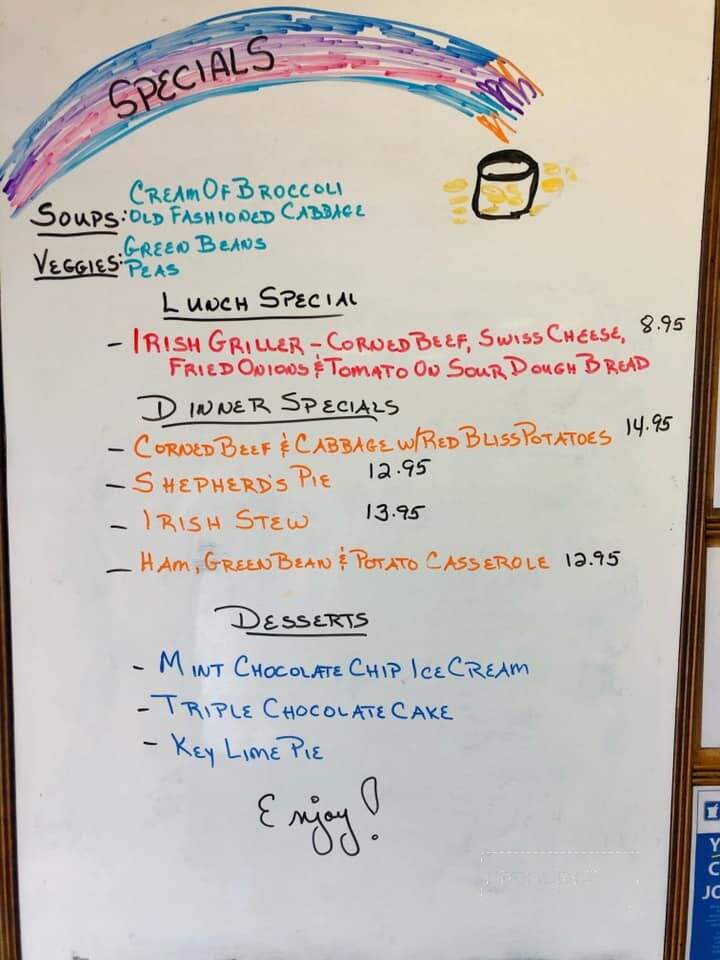 SPECIALS
CREAM OF BROCCOLI
SOUPS: OLD FASHIONED CABBAGE
GREEN BEANS
VEGGIES: PEAS
LUNCH SPECIAL
- IRISH GRILLER - CORNED BEEF, SWISS CHEESE, 8.95
FRIED ONIONS & TOMATO ON SOUR DOUGH BREAD
DINNER SPECIALS
- CORNED BEEF & CABBAGE W/RED BLISS POTATOES 14.95
- SHEPHERD'S PIE 12.95
- IRISH STEW 13.95
- HAM, GREEN BEAN & POTATO CASSEROLE 12.95
DESSERTS
- MINT CHOCOLATE CHIP ICE CREAM
- TRIPLE CHOCOLATE CAKE
- KEY LIME PIE
Enjoy!